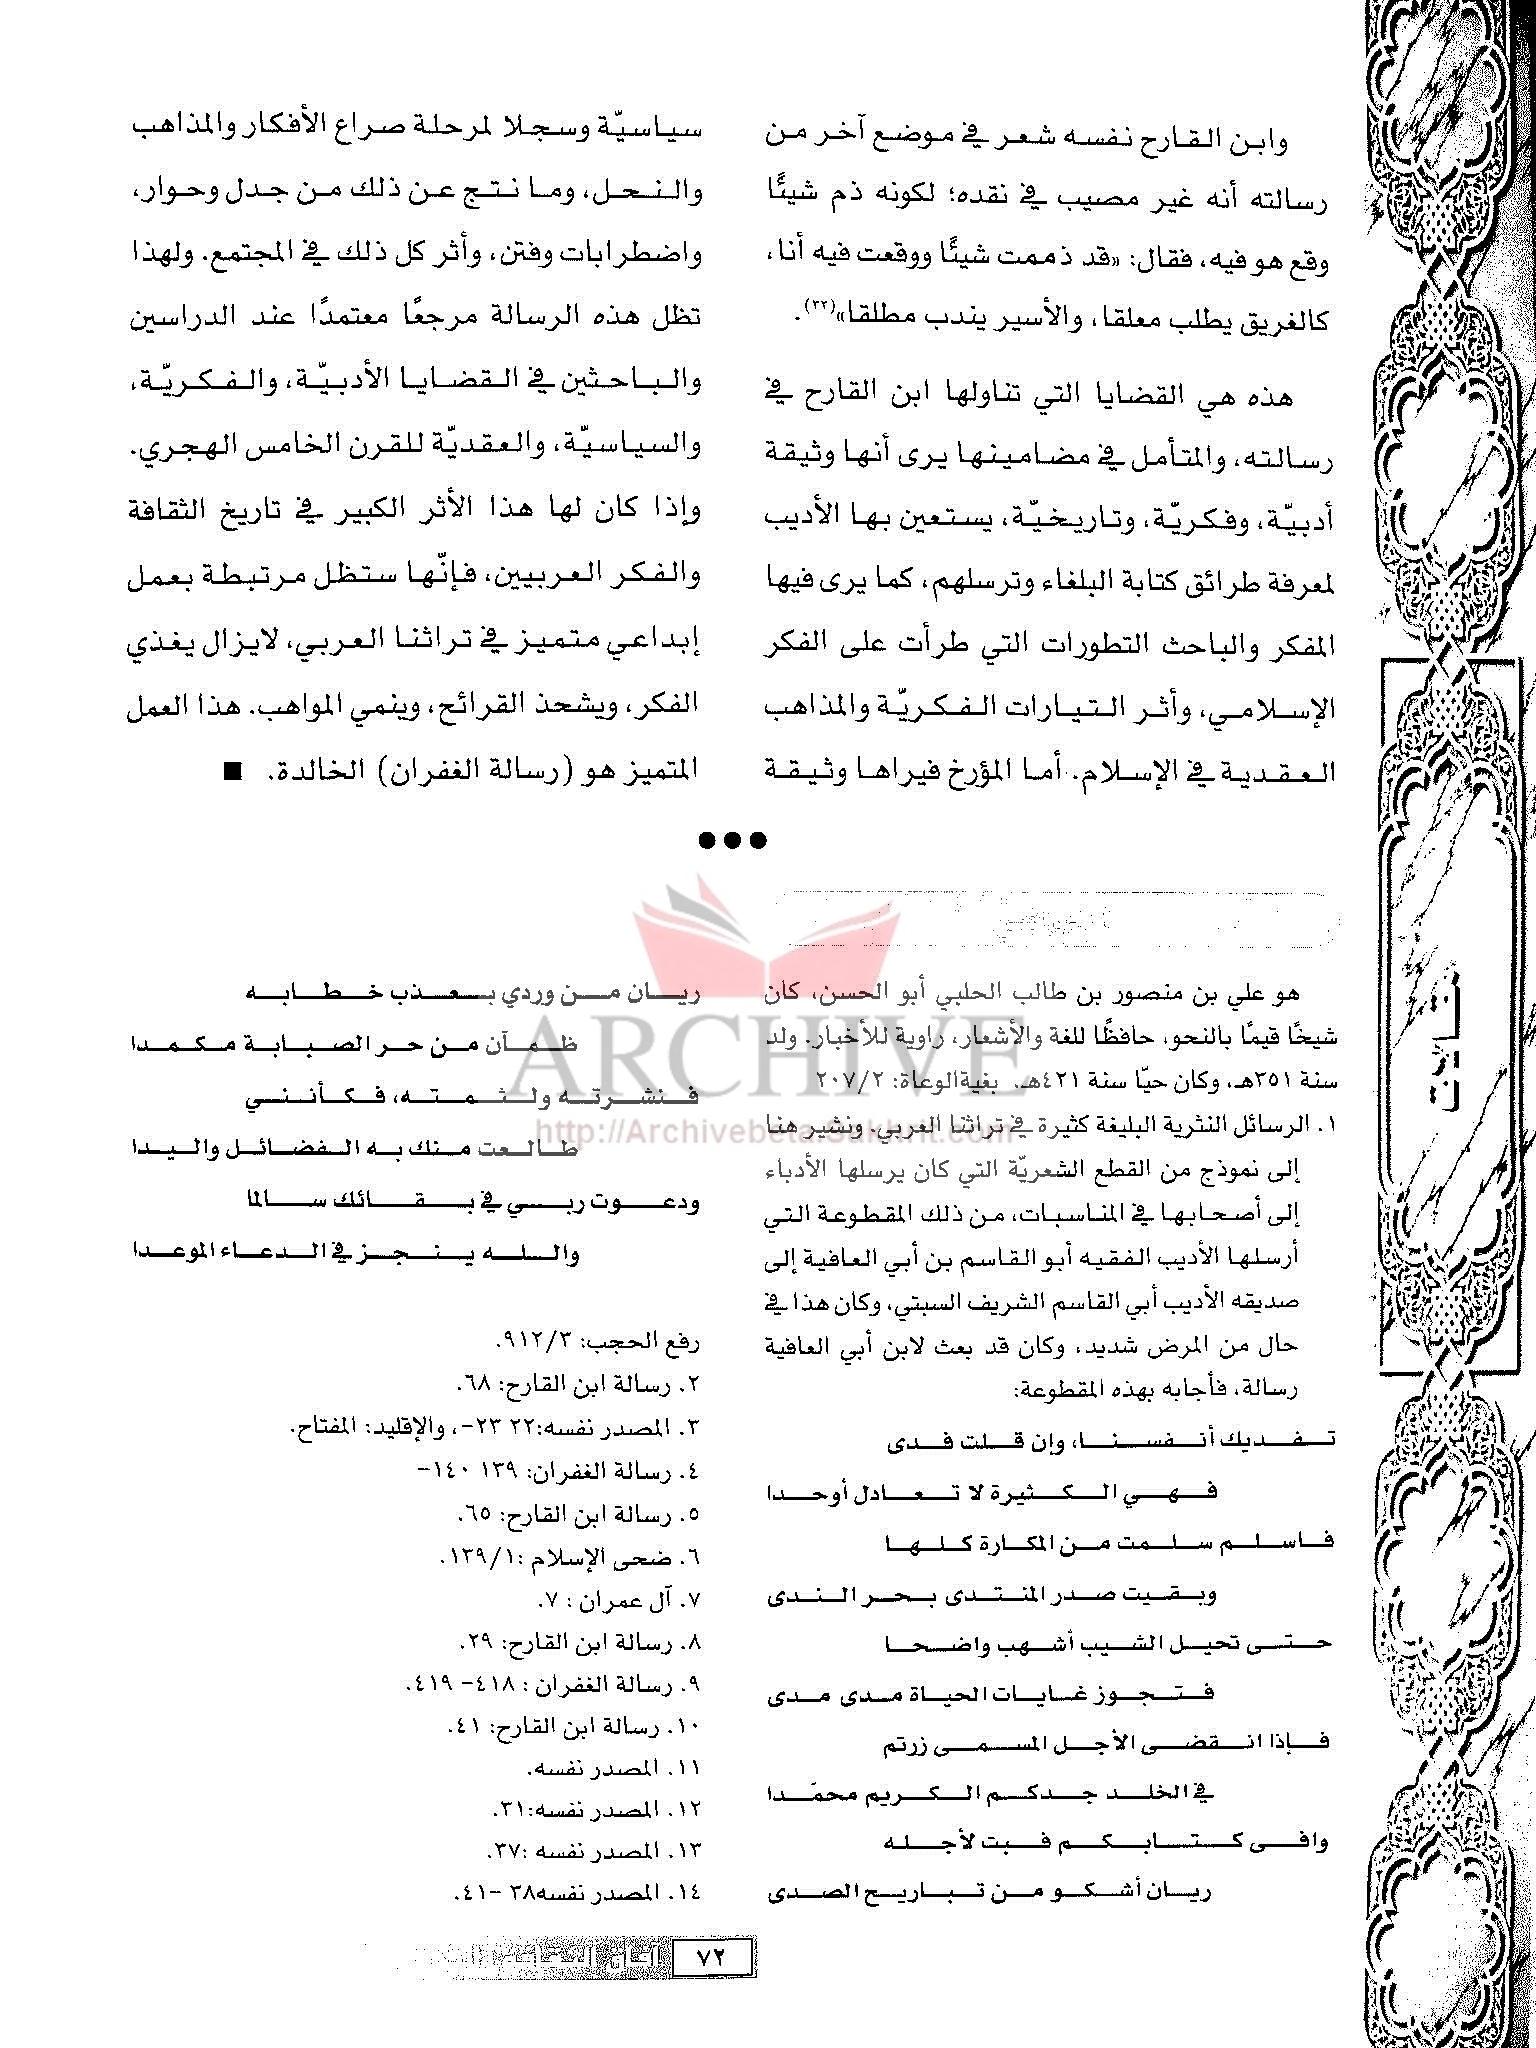 وابن القارح نفسه شعر في موضع آخر من
رسالته أنه غير مصيب في نقده؛ لكونه ذم شيئًا
وقع هو فيه، فقال: «قد ذممت شيئًا ووقعت فيه أنا،
كالغريق يطلب معلقا، والأسير يندب مطلقا»(٣٢).
هذه هي القضايا التي تناولها ابن القارح في
رسالته، والمتأمل في مضامينها يرى أنها وثيقة
أدبيّة، وفكريّة، وتاريخيّة، يستعين بها الأديب
لمعرفة طرائق كتابة البلغاء وترسلهم، كما يرى فيها
المفكر والباحث التطورات التي طرأت على الفكر
الإسلامي، وأثر التيارات الفكريّة والمذاهب
العقدية في الإسلام. أما المؤرخ فيراها وثيقة
سياسيّة وسجلا لمرحلة صراع الأفكار والمذاهب
والنحل، وما نتج عن ذلك من جدل وحوار،
واضطرابات وفتن، وأثر كل ذلك في المجتمع. ولهذا
تظل هذه الرسالة مرجعًا معتمدًا عند الدراسين
والباحثين في القضايا الأدبيّة، والفكريّة،
والسياسيّة، والعقديّة للقرن الخامس الهجري.
وإذا كان لها هذا الأثر الكبير في تاريخ الثقافة
والفكر العربيين، فإنّها ستظل مرتبطة بعمل
إبداعي متميز في تراثنا العربي، لايزال يغذي
الفكر، ويشحذ القرائح، وينمي المواهب. هذا العمل
المتميز هو (رسالة الغفران) الخالدة. ■
●●●
هو علي بن منصور بن طالب الحلبي أبو الحسن، كان
شيخًا قيمًا بالنحو، حافظًا للغة والأشعار، راوية للأخبار. ولد
سنة ٣٥١هـ، وكان حيّا سنة ٤٢١هـ. بغيةالوعاة: ٢٠٧/٢
١. الرسائل النثرية البليغة كثيرة في تراثنا العربي. ونشير هنا
إلى نموذج من القطع الشعريّة التي كان يرسلها الأدباء
إلى أصحابها في المناسبات، من ذلك المقطوعة التي
أرسلها الأديب الفقيه أبو القاسم بن أبي العافية إلى
صديقه الأديب أبي القاسم الشريف السبتي، وكان هذا في
حال من المرض شديد، وكان قد بعث لابن أبي العافية
رسالة، فأجابه بهذه المقطوعة:
تفديك أنفسنا، وإن قلت فدى
فهي الكثيرة لا تعادل أوحدا
فاسلم سلمت من المكارة كلها
وبقيت صدر المنتدى بحر الندى
حتى تحيل الشيب أشهب واضحا
فتجوز غايات الحياة مدى مدى
فإذا انقضى الأجل المسمى زرتم
في الخلد جدكم الكريم محمّدا
وافى كتابكم فبت لأجله
ريان أشكو من تباريح الصدى
ريان من وردي بعذب خطابه
ظمآن من حر الصبابة مكمدا
فنشرته ولثمته، فكأنني
طالعت منك به الفضائل واليدا
ودعوت ربي في بقائك سالما
والله ينجز في الدعاء الموعدا
رفع الحجب: ٩١٢/٣.
٢. رسالة ابن القارح: ٦٨.
٣. المصدر نفسه:٢٢ ٢٣-، والإقليد: المفتاح.
٤. رسالة الغفران: ١٣٩ ١٤٠-
٥. رسالة ابن القارح: ٦٥.
٦. ضحى الإسلام :١٣٩/١.
٧. آل عمران : ٧.
٨. رسالة ابن القارح: ٢٩.
٩. رسالة الغفران : ٤١٨- ٤١٩.
١٠. رسالة ابن القارح: ٤١.
١١. المصدر نفسه.
١٢. المصدر نفسه:٣١.
١٣. المصدر نفسه :٣٧.
١٤. المصدر نفسه٣٨ -٤١.
مقالات
ARCHIVE
http://Archivebeta.Sakhrit.com
٧٢